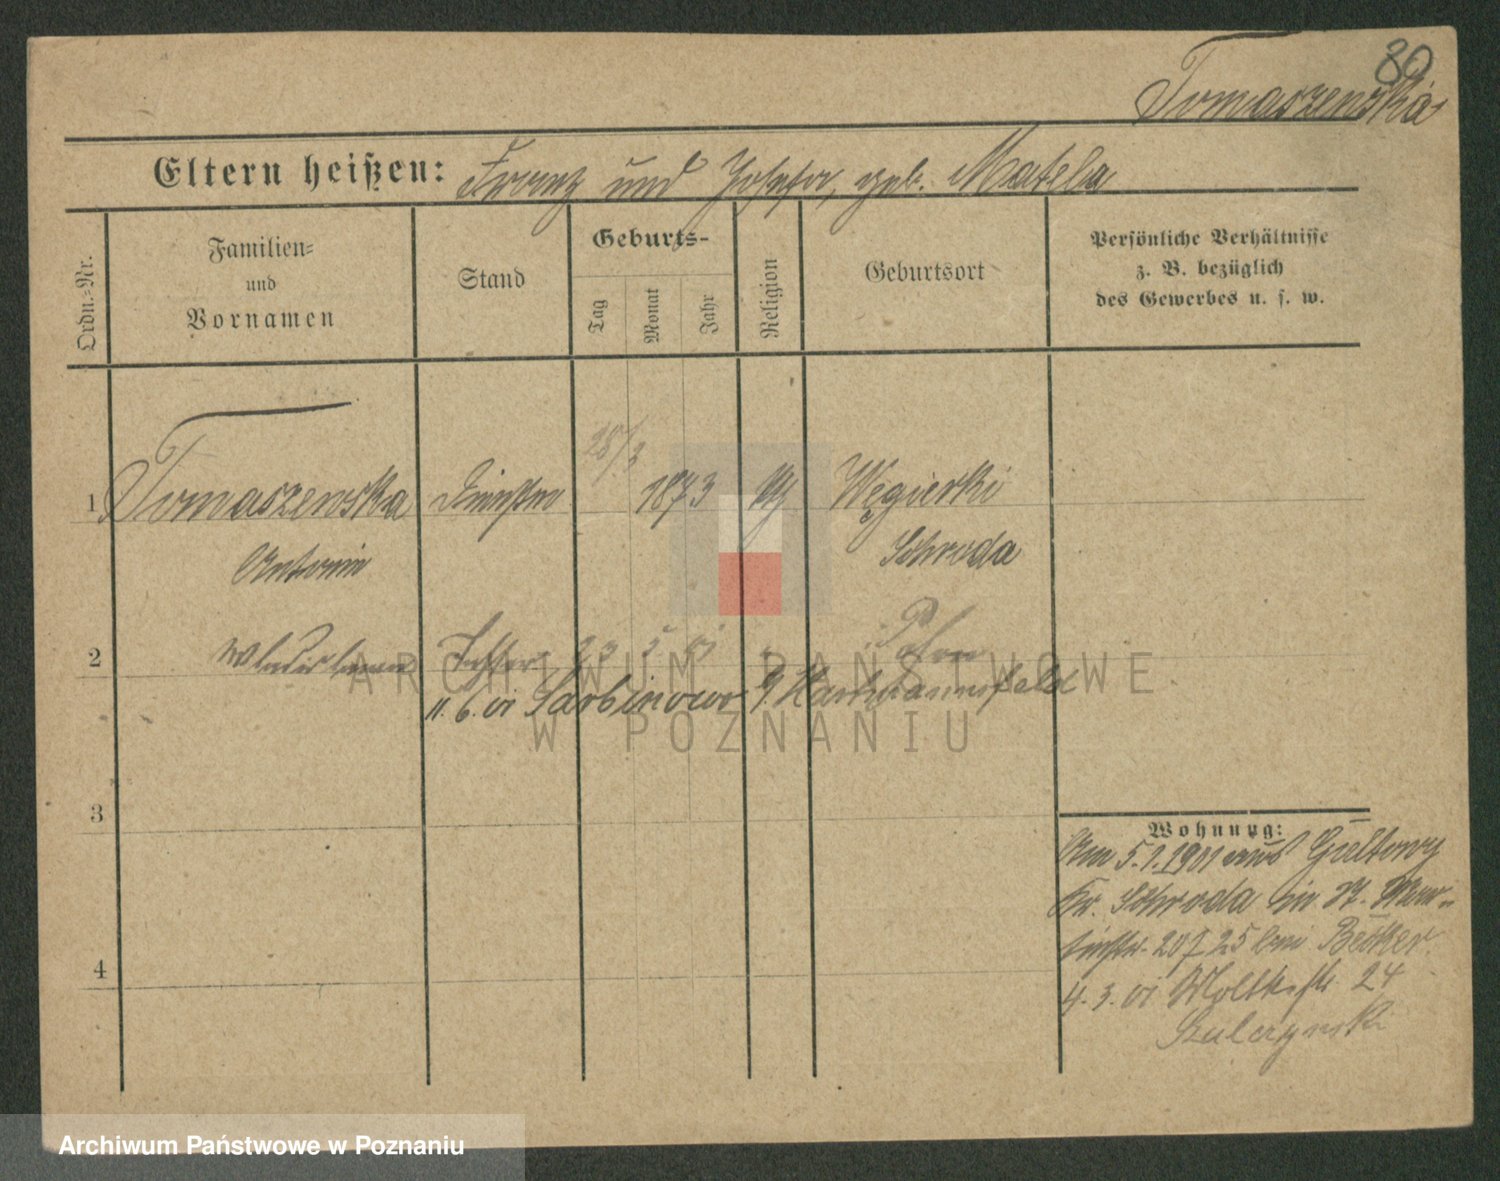 80
Tomaszewska
Eltern heißen: Franz und Josefa, geb. Matela
Ordn.-Nr.
Familien- und Vornamen
Stand
Geburts-
Tag
Monat
Jahr
Religion
Geburtsort
Persönliche Verhältnisse
z. B. bezüglich
des Gewerbes u. s. w.
28/3
1 Tomaszewska 1873 Węgierki
Antonin Schroda
2 Tochter 23 5 Posen
11. 6. 01 Sarbinowo Hartmannsfeld
3
Wohnung:
Am 5.1.1901 aus Gultowy
Kr. Schroda in St. Mar-
tinstr. 20 25 bei Becker
4
4. 3. 01 Moltkestr. 24
ARCHIWUM PAŃSTWOWE
W POZNANIU
Archiwum Państwowe w Poznaniu